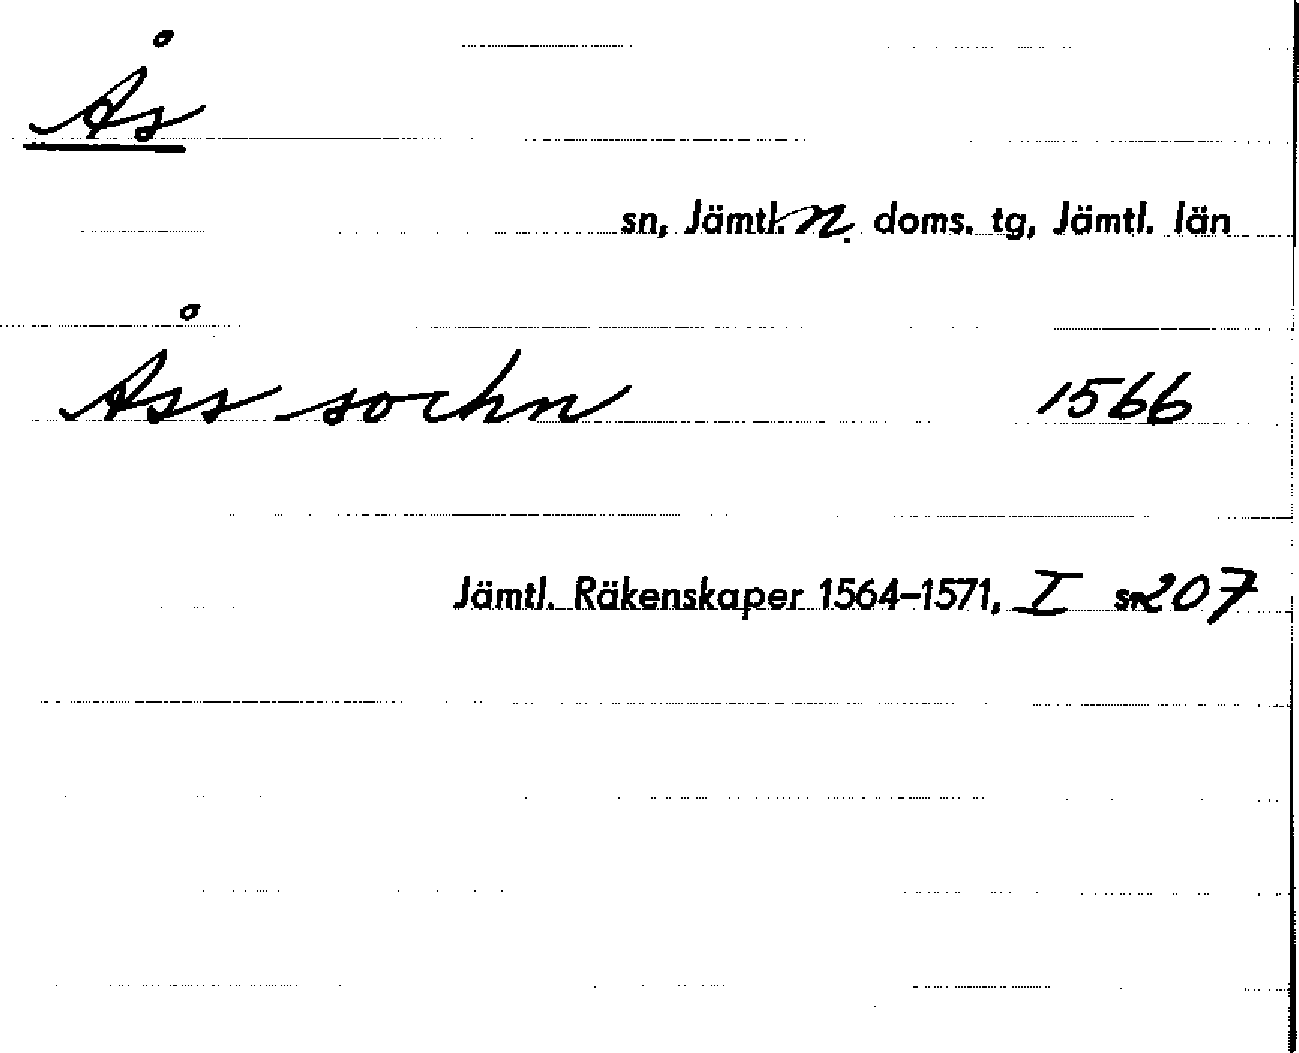 Ås
sn, Jämtl. n. doms. tg, Jämtl. län
Åss sochn 1566
Jämtl. Räkenskaper 1564–1571, I s. 207